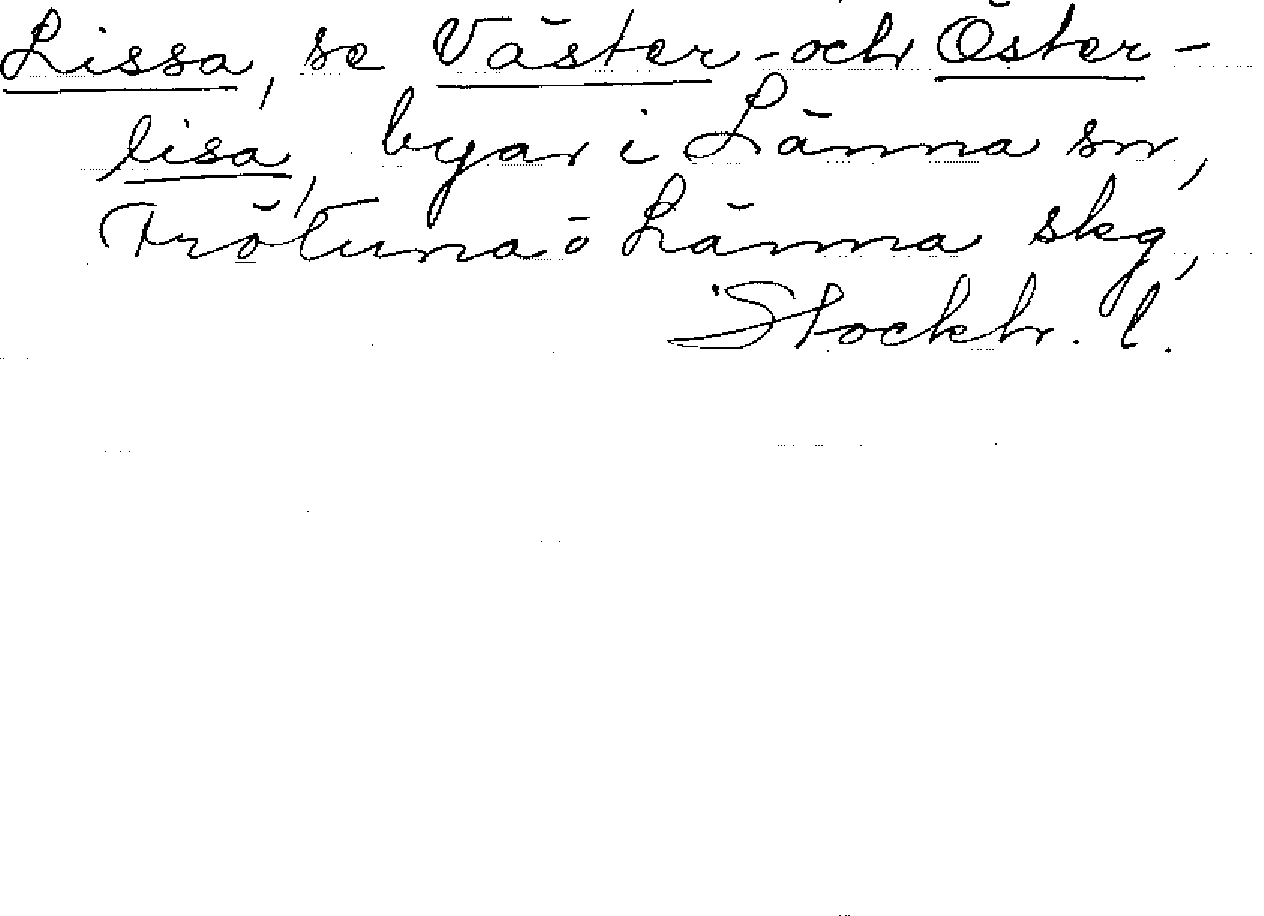 Lissa, se Väster- och Öster-
lisa, byar i Länna sn,
Frötuna o Länna skg,
Stockh. l.